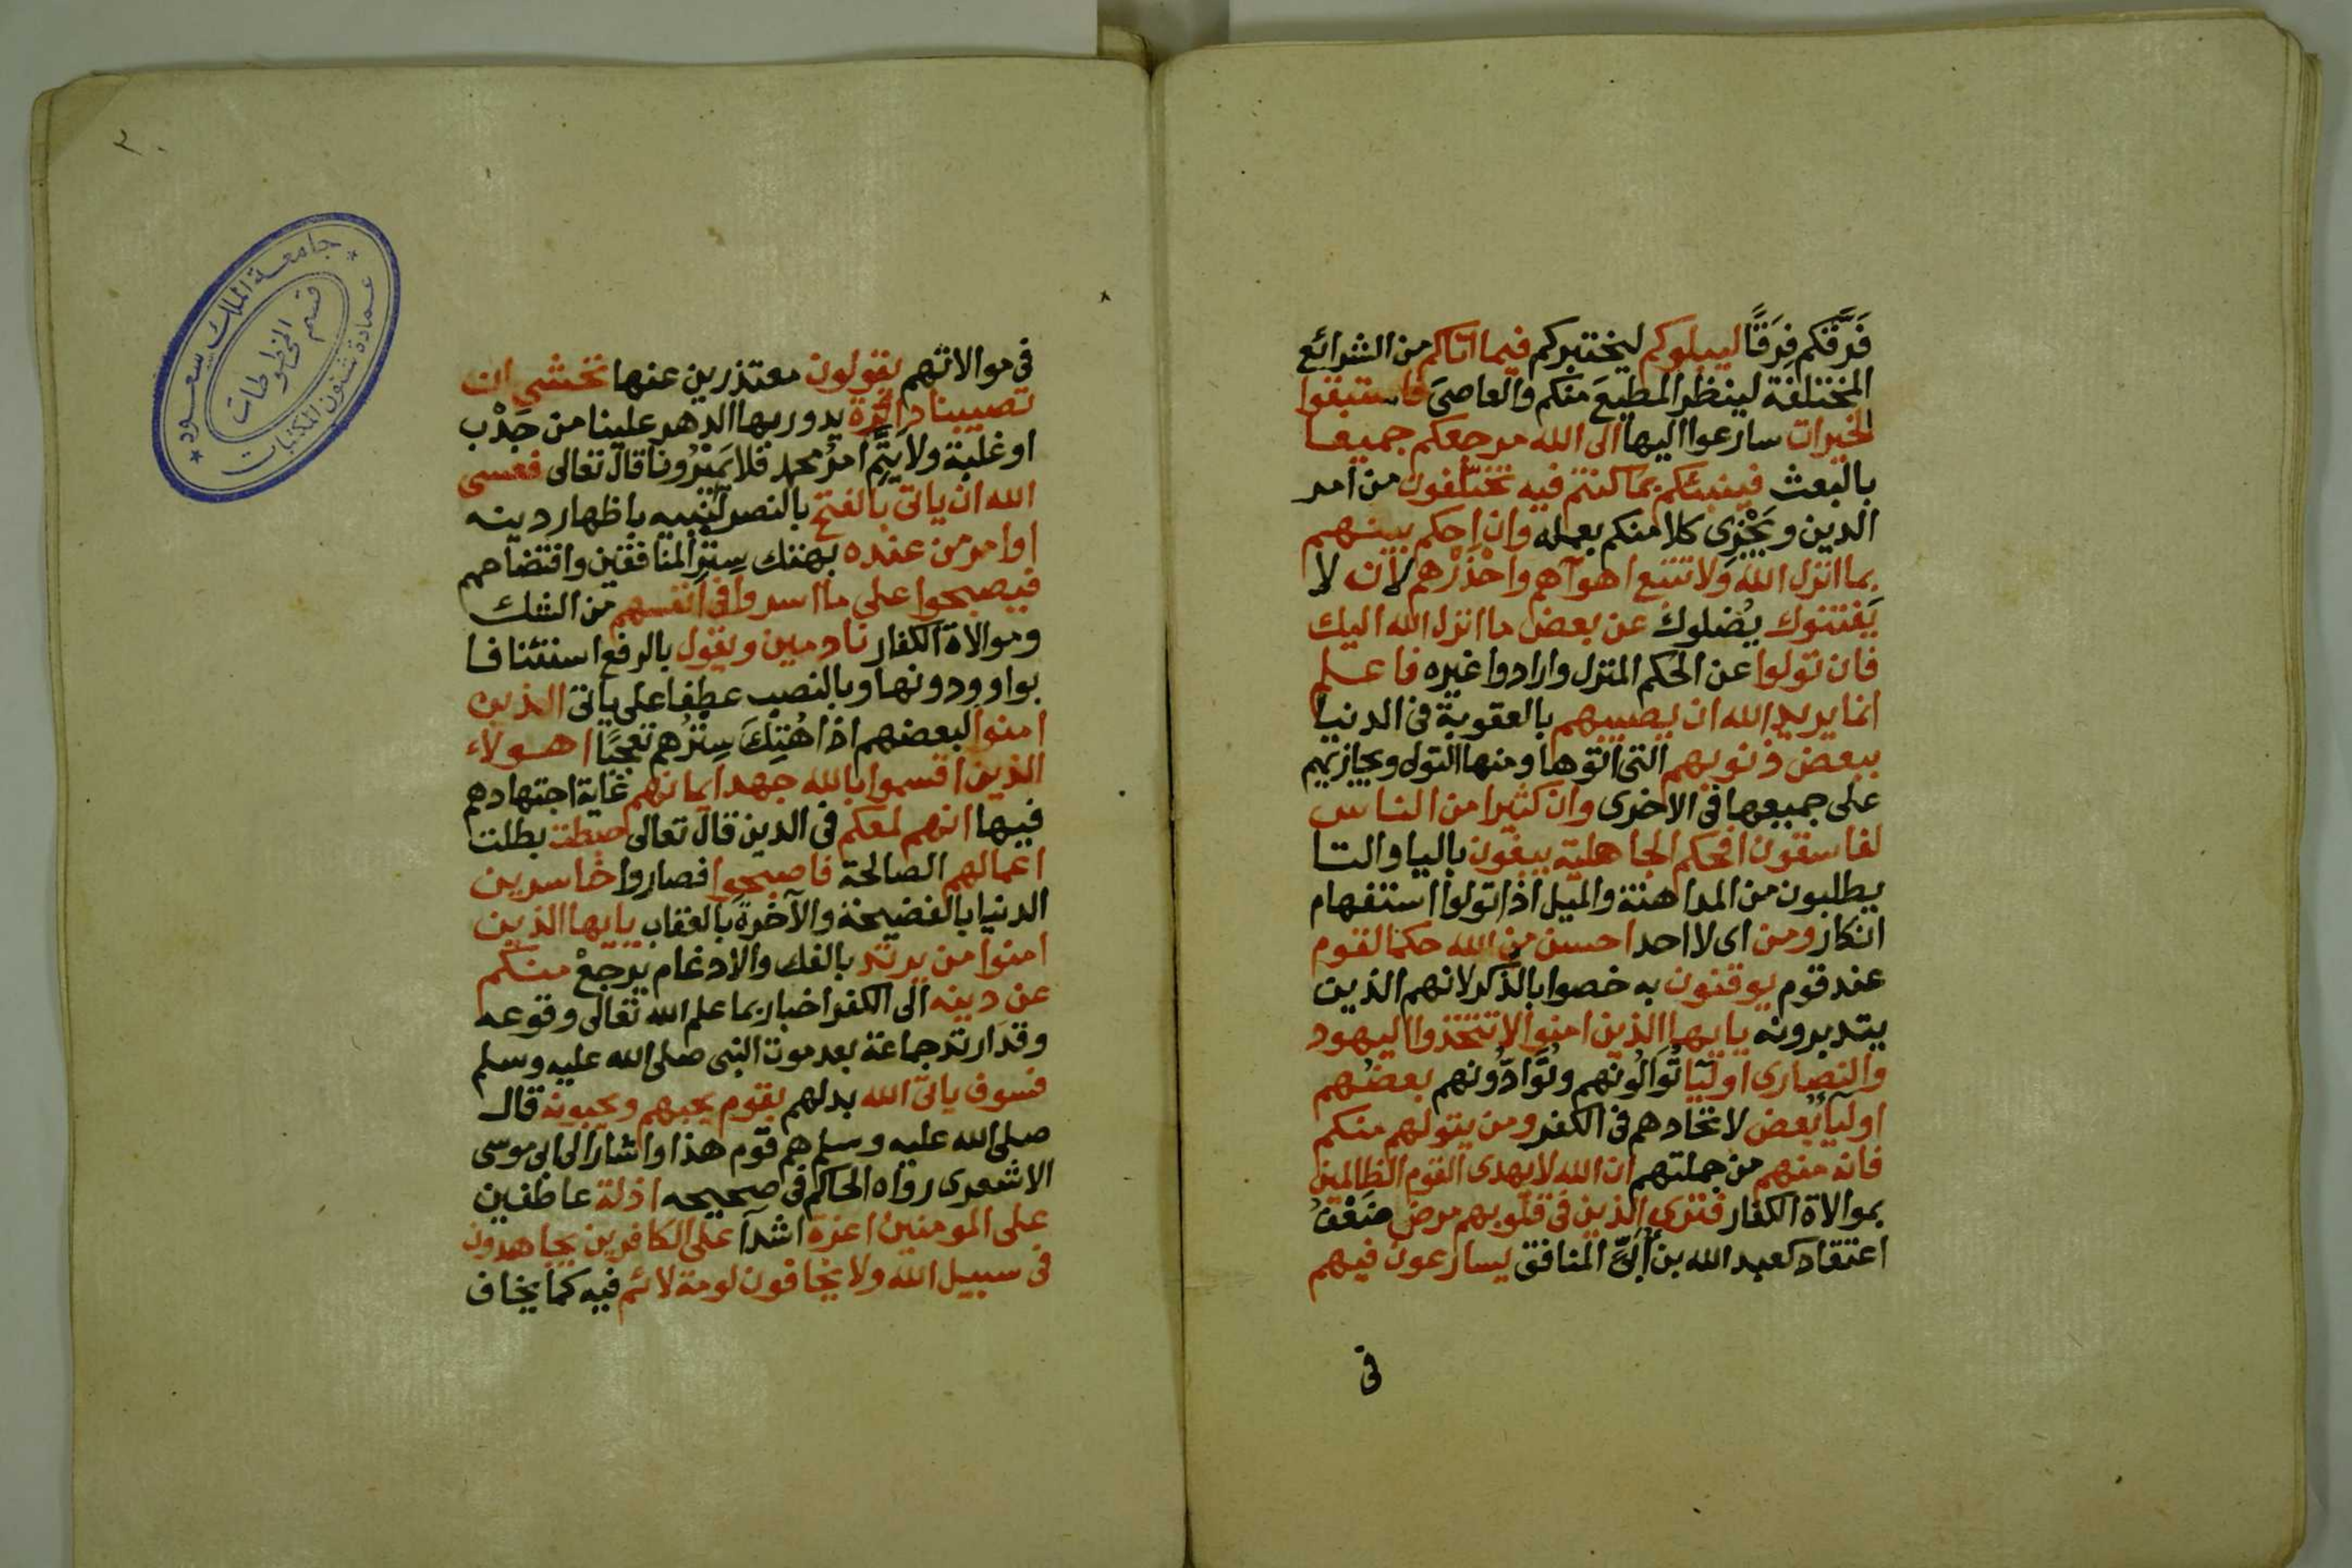 فَرَّقكم فِرَقًا ليبلوكم ليختبركم فيما اتاكم من الشرائع
المختلفة لينظر المطيعَ منكم والعاصىَ فاستبقوا
الخيرات سارعوا اليها الى الله مرجعكم جميعا
بالبعث فينبئكم بما كنتم فيه تختلفون من امر
الدين ويَجْزِى كلا منكم بعمله وان احكم بينهم
بما انزل الله ولا تتبع اهوآهم واحْذَرْهم لأن لا
يَفتنوك يُضلوك عن بعض ما انزل الله اليك
فان تولوا عن الحكم المنزل وارادوا غيره فاعلم
انما يريد الله ان يصيبهم بالعقوبة فى الدنيا
ببعض ذنوبهم التى اتوها ومنها التولى ويجازيهم
على جميعها فى الاخرى وان كثيرا من الناس
لفاسقون افحكم الجاهلية يبغون باليا والتا
يطلبون من المداهنة والميل اذا تولوا استفهام
انكار ومن اى لا احد احسن من الله حكما لقوم
عند قوم يوقنون به خصوا بالذكر لانهم الذين
يتدبرونه يايها الذين امنوا لا تتخذوا اليهود
والنصارى اوليآ تُوَالُونهم وتُوَادُّونهم بعضُهم
اوليآ بعض لاتحادهم فى الكفر ومن يتولهم منكم
فانه منهم من جملتهم ان الله لا يهدى القوم الظالمين
بموالاة الكفار فترى الذين فى قلوبهم مرض ضَعْفُ
اعتقاد كعبد الله بن أُبَىّ المنافق يسارعون فيهم
فى
٢٠
جامعة الملك سعود
عمادة شئون المكتبات
قسم المخطوطات
فى موالاتهم يقولون معتذرين عنها نخشى ان
تصيبنا دائرة يدور بها الدهر علينا من جَدْب
او غلبة ولا يَتِمّ امرُ محمد فلا يَمِيْرُونا قال تعالى فعسى
الله ان ياتى بالفتح بالنصر لنبيه باظهار دينه
او امر من عنده بهتك سِتر المنافقين وافتضاحهم
فيصبحوا على ما اسروا فى انفسهم من الشك
وموالاة الكفار نادمين ويقول بالرفع استئنافا
بواو ودونها وبالنصب عطفا على ياتى الذين
امنوا لبعضهم اذا هُتِكَ سِتْرُهم تعجبًا اهولاء
الذين اقسموا بالله جهد ايمانهم غاية اجتهادهم
فيها انهم لمعكم فى الدين قال تعالى حبطت بطلت
اعمالهم الصالحة فاصبحوا فصاروا خاسرين
الدنيا بالفضيحة والآخرة بالعقاب يايها الذين
امنوا من يرتد بالفك والادغام يرجعْ منكم
عن دينه الى الكفر اخبار بما علم الله تعالى وقوعه
وقد ارتد جماعة بعد موت النبى صلى الله عليه وسلم
فسوف ياتى الله بدلهم بقوم يحبهم ويحبونه قال
صلى الله عليه وسلم هم قوم هذا واشار الى ابى موسى
الاشعرى رواه الحاكم فى صحيحه اذلة عاطفين
على المومنين اعزة اشدآ على الكافرين يجاهدون
فى سبيل الله ولا يخافون لومة لائم فيه كما يخاف